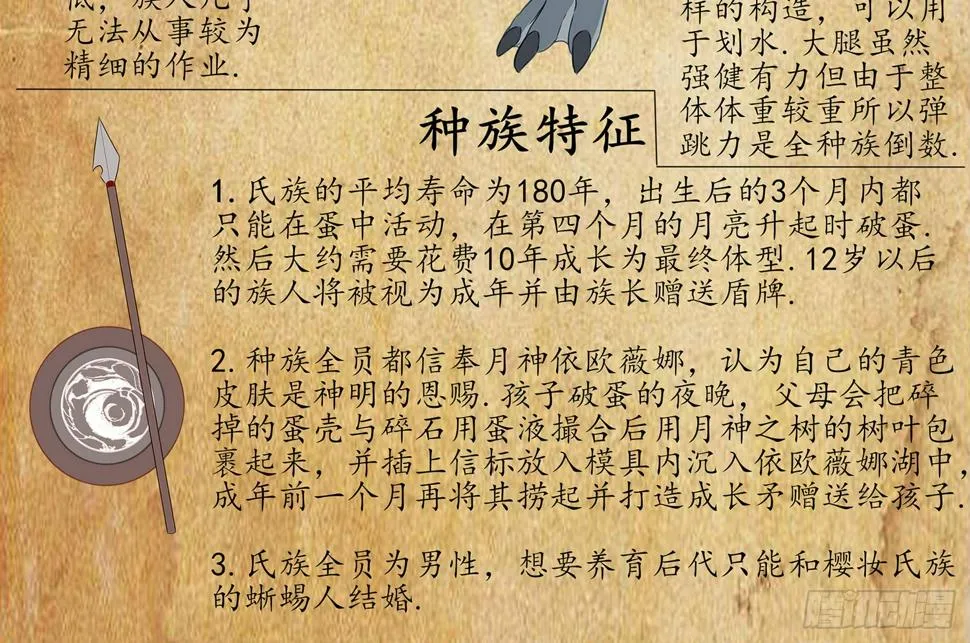 无法从事较为
精细的作业.
样的构造，可以用
于划水.大腿虽然
强健有力但由于整
体体重较重所以弹
跳力是全种族倒数.
种族特征
1.氏族的平均寿命为180年，出生后的3个月内都
只能在蛋中活动，在第四个月的月亮升起时破蛋.
然后大约需要花费10年成长为最终体型.12岁以后
的族人将被视为成年并由族长赠送盾牌.
2.种族全员都信奉月神依欧薇娜，认为自己的青色
皮肤是神明的恩赐.孩子破蛋的夜晚，父母会把碎
掉的蛋壳与碎石用蛋液撮合后用月神之树的树叶包
裹起来，并插上信标放入模具内沉入依欧薇娜湖中，
成年前一个月再将其捞起并打造成长矛赠送给孩子.
3.氏族全员为男性，想要养育后代只能和樱妆氏族
的蜥蜴人结婚.
腾讯动漫